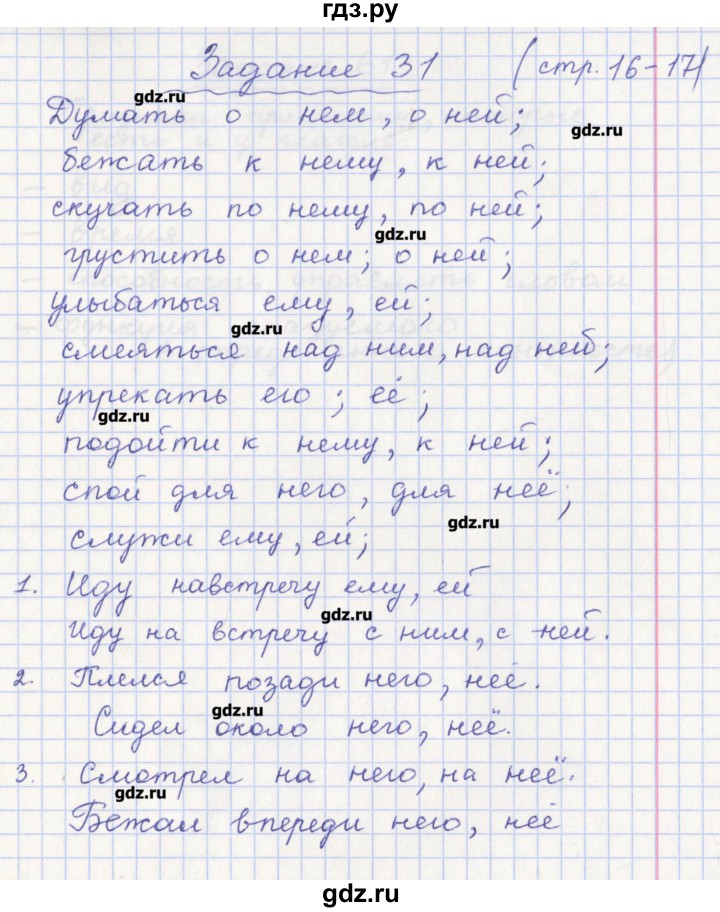 гдз.ру
Задание 31 (стр. 16-17)
gdz.ru
Думать о нем, о ней;
gdz.ru
бежать к нему, к ней;
скучать по нему, по ней;
gdz.ru
грустить о нем; о ней;
улыбаться ему, ей;
gdz.ru
смеяться над ним, над ней;
упрекать его; её;
gdz.ru
подойти к нему, к ней;
спой для него, для неё;
gdz.ru
служи ему, ей;
1. Иду навстречу ему, ей
gdz.ru
Иду на встречу с ним, с ней.
2. Плелся позади него, неё.
gdz.ru
Сидел около него, неё.
3. Смотрел на него, на неё.
gdz.ru
Бежал впереди него, неё
gdz.ru